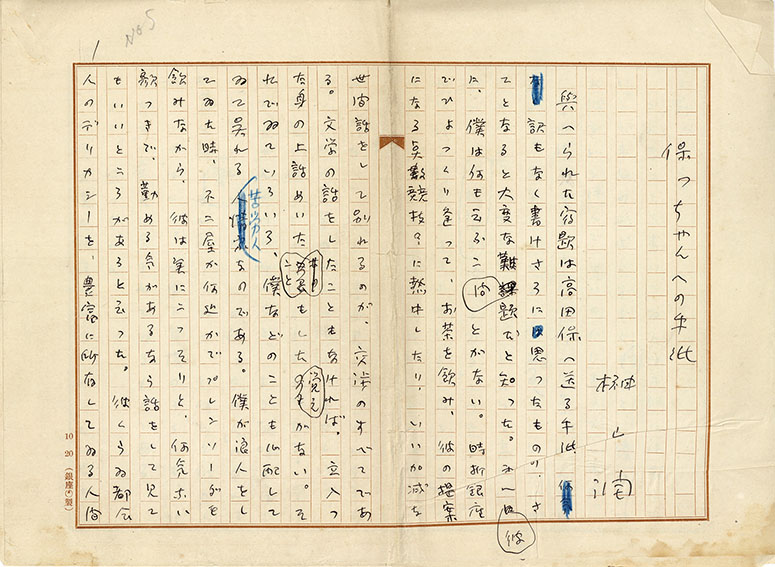 保っちゃんへの手紙
榊山潤
與へられた宿題は高田保へ送る手紙、
訳もなく書けさうに思ったものゝ、さ
てとなると大変な難題だと知った。彼
に、僕は何も云ふことがない。時折銀座
でひよつくり逢って、お茶を飲み、彼の提案
になる点数競技?に熱中したり、いい加減な
世間話をして別れるのが、交渉のすべてであ
る。文学の話をしたこともなければ、立入つ
た身の上話めいたこともした覚えがない。そ
れでゐていろいろ、僕などのことも心配して
ゐて呉れる苦労人なのである。僕が浪人をし
てゐた時、不二屋か何処かでプレンソーダを
飲みながら、彼は実にこつそりと、何気ない
顔つきで、勤める気があるなら話をして見て
もいいところがあると云った。彼くらゐ都会
人のデリカシーを、豊富に所有してゐる人間
1
No 5
10 20 (銀座製)